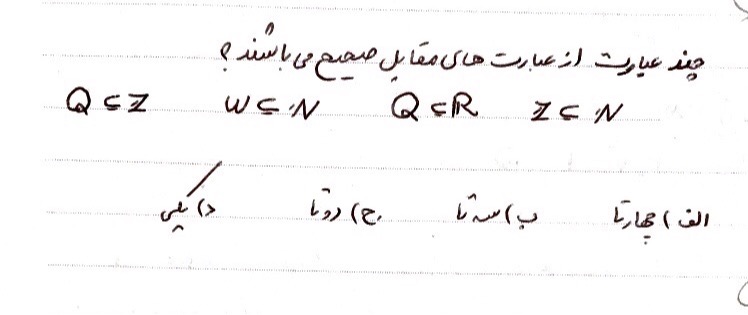 چند عبارت از عبارت های مقابل صحیح می باشند؟
Q ⊆ Z    W ⊆ N    Q ⊆ R    Z ⊆ N
الف) چهارتا    ب) سه تا    ج) دوتا    د) یکی